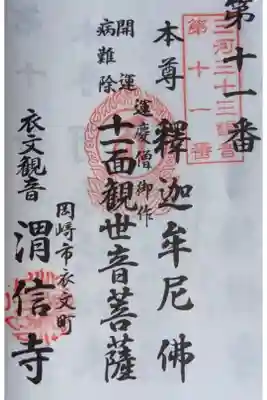 第十一番
三河三十三観音
第十一番
本尊 釋迦牟尼佛
開運
病難除
運慶僧御作
十一面観世音菩薩
衣文観音
岡崎市衣文町
渭信寺